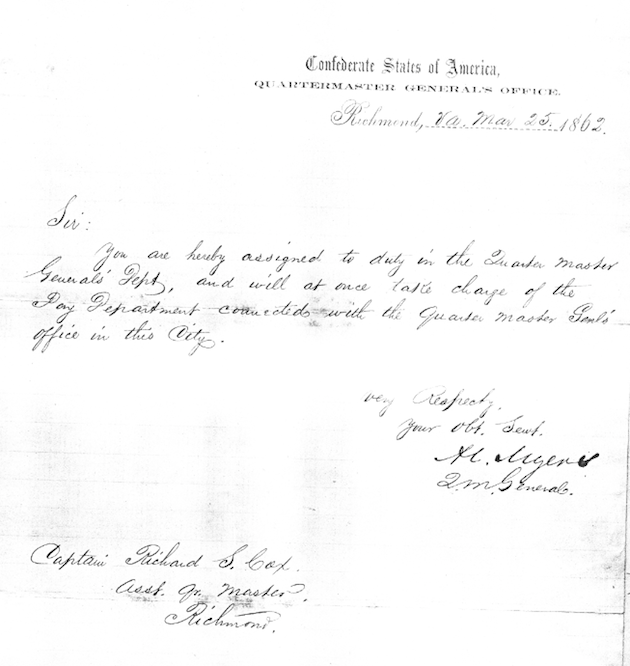 Confederate States of America,
QUARTERMASTER GENERAL'S OFFICE.
Richmond, Va. Mar 25. 1862.
Sir:
You are hereby assigned to duty in the Quarter Master
Generals' Dept, and will at once take charge of the
Pay Department connected with the Quarter Master Genl's
office in this City.
very Respecty,
Your Obt. Servt.
A.C. Myers
Q.M. General.
Captain Richard S. Cox.
Asst. Qr. Master,
Richmond.